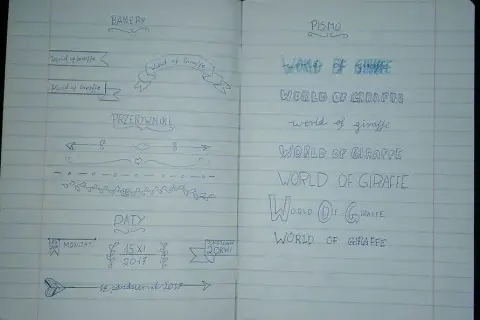 BANERY
World of Giraffe
World of Giraffe
World of Giraffe
PRZERYWNIKI
DATY
MONDAY
15 XI
2017
październik 2017
PISMO
WORLD OF GIRAFFE
WORLD OF GIRAFFE
world of giraffe
WORLD OF GIRAFFE
WORLD OF GIRAFFE
WORLD OF GIRAFFE
WORLD OF GIRAFFE